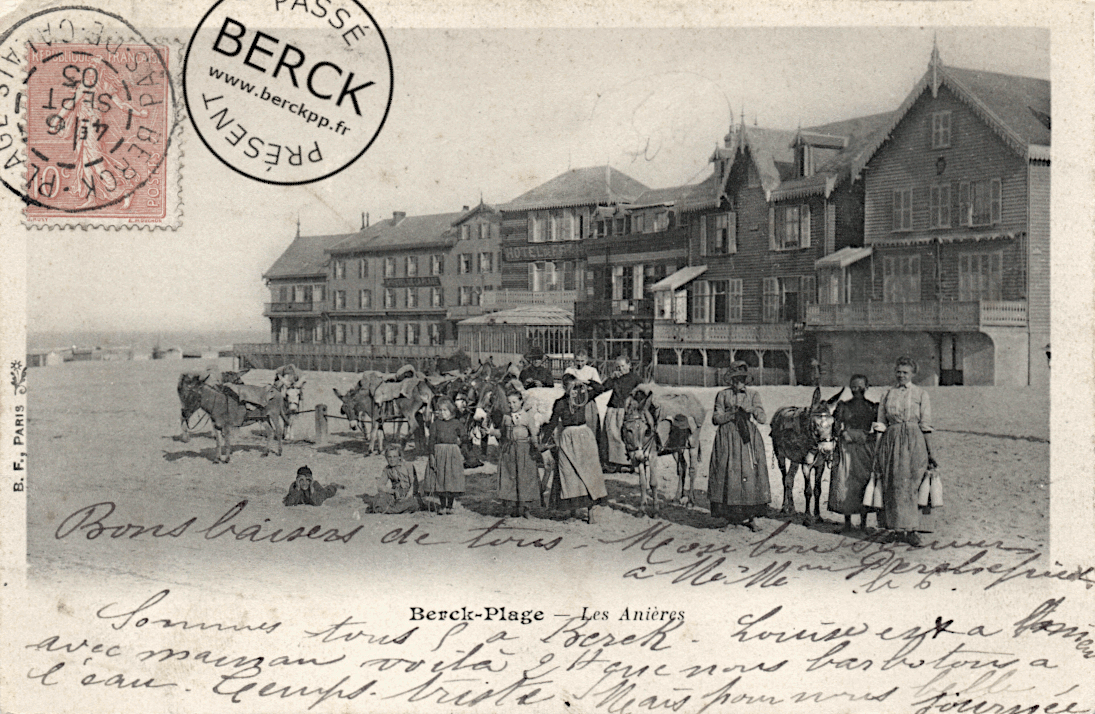 PASSÉ
BERCK
www.berckpp.fr
PRÉSENT
RÉPUBLIQUE FRANÇAISE
10c POSTES
BERCK-PLAGE PAS-DE-CALAIS
4E / 6
1 SEPT
05
HOTEL
B. F., PARIS
Bons baisers de tous - Mon bon souvenir
à Mr Mme
Berck-Plage — Les Anières
Sommes tous 5 à Berck. Louise est à
avec maman voilà 2 H que nous barbotons à
l'eau. Temps triste. Mais pour nous belle
journée